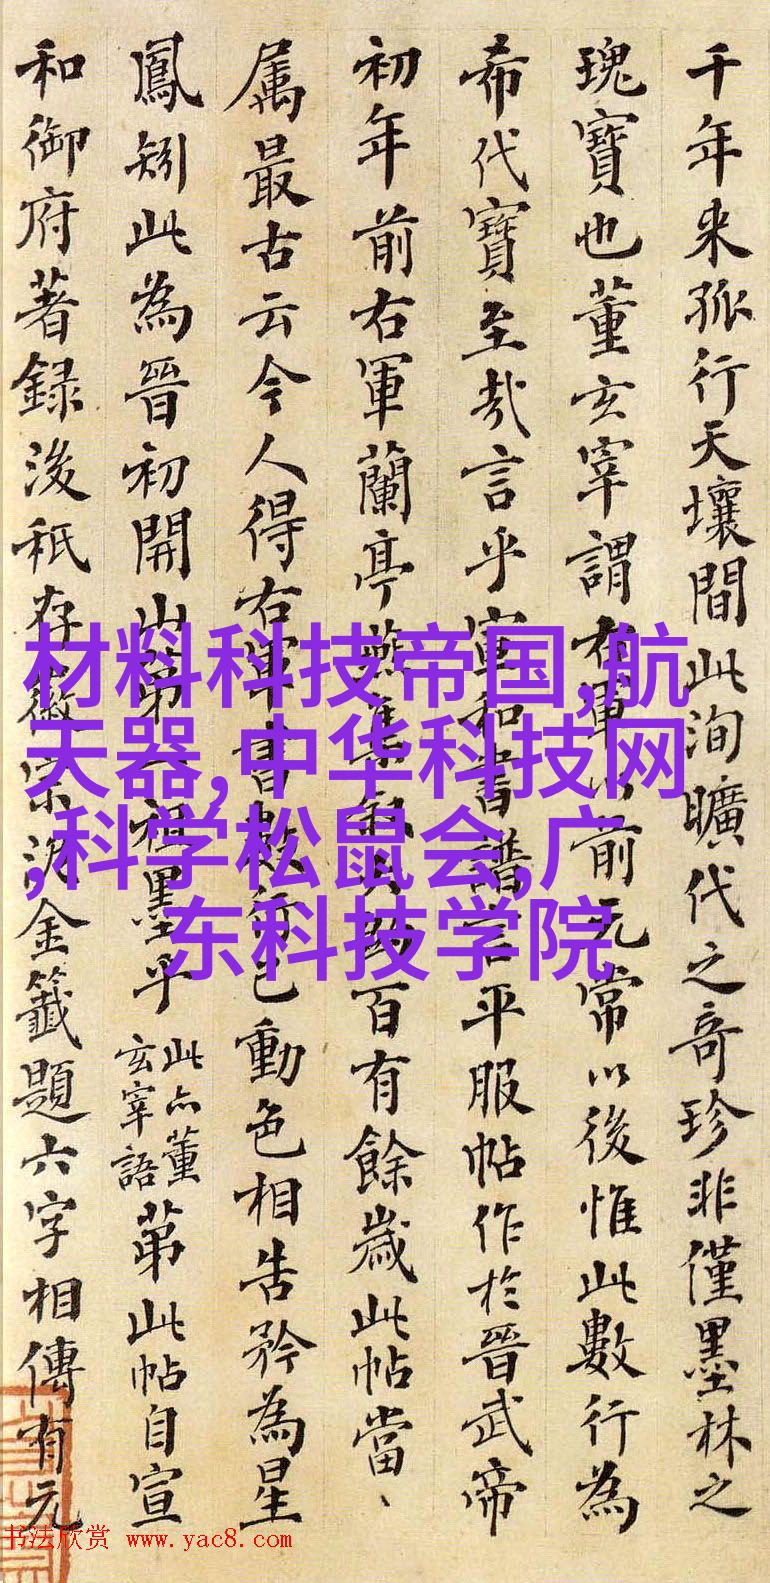 千年来孤行天壤間此洵曠代之奇珍非僅墨林之
瑰寶也董玄宰謂右軍以前元常以後惟此數行為
希代寶至哉言乎宣和書譜言平服帖作於晉武帝
初年前右軍蘭亭燕集敘百有餘歲此帖當、
属最古云今人得右軍書數行已動色相告矜為星
鳳矧此為晉初開山第一祖墨乎此亦董玄宰語苐此帖自宣
和御府著錄後秖存徽宗泥金籤題六字相傳有元
材料科技帝国,航
天器,中华科技网
,科学松鼠会,广
东科技学院
书法欣赏 www.yac8.com